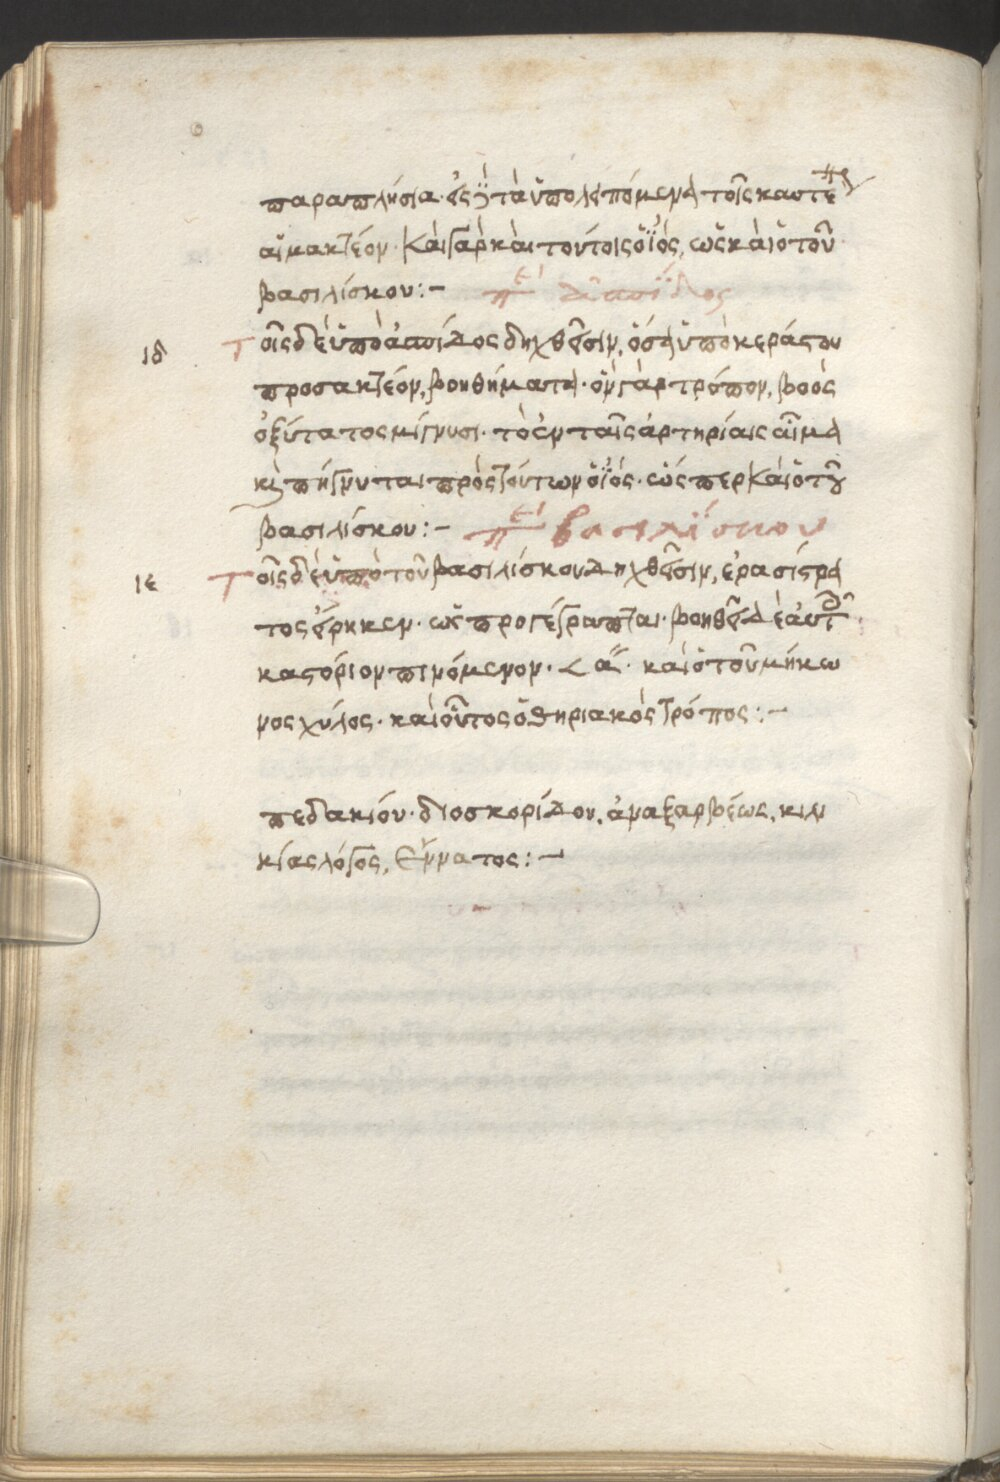 παραπλήσια. ἐς τὰ ὑπολειπόμενα τοῖς καυστη
αἱμακτέον. καὶ γὰρ καὶ τούτοις ὁ ἰὸς, ὡς καὶ ὁ τοῦ
βασιλίσκου:- περὶ ἀσπίδος
ιδ Τοῖς δὲ ὑπὸ ἀσπίδος δηχθεῖσιν, ὅσα ὑπὸ κεράστου
προσακτέον, βοηθήματα. ὃν γὰρ τρόπον, βοὸς
ὀξύτατος μίγνυσι. τὸ ἐν ταῖς ἀρτηρίαις αἷμα
καὶ πήγνυται πρὸς τούτων ὁ ἰός. ὥς περ καὶ ὁ τοῦ
βασιλίσκου:- περὶ βασιλίσκου
ιε Τοῖς δὲ ὑπὸ τοῦ βασιλίσκου δηχθεῖσιν, ἐρασίστρα
τος εἴρηκεν. ὡς προγέγραπται. βοηθεῖ δὲ αὐτοῦ
καστόριον πινόμενον. < α. καὶ ὁ τοῦ μήκω
νος χυλός. καὶ οὗτος ὁ θηριακὸς τρόπος:-
πεδακίου. διοσκορίδου, ἀναξαρβέως, κιλι
κίας λόγος, ἔνατος:-